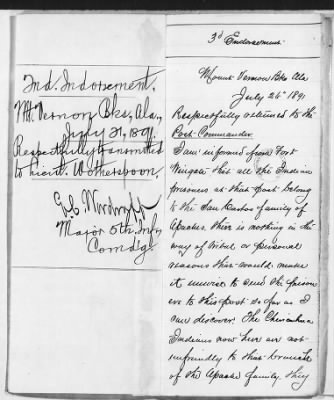 2nd. Indorsement.
Mt. Vernon Bks, Ala.,
July 31, 1891.
Respectfully transmitted
to Lieut. Wotherspoon.
Major 5th. Inf.
Comdg.
3d Endorsement.
Mount Vernon Bks Ala
July 1891
Respectfully returned to the
Post Commander.
I am informed from Fort
Wingate that all the Indian
prisoners at that post belong
to the San Carlos family of
Apaches. There is nothing in the
way of tribal or personal
reasons that would make
it unwise to send the prison
ers to this post so far as I
can discover. The Chiricahua
Indians now here are not
unfriendly to that branch
of the Apache family. They